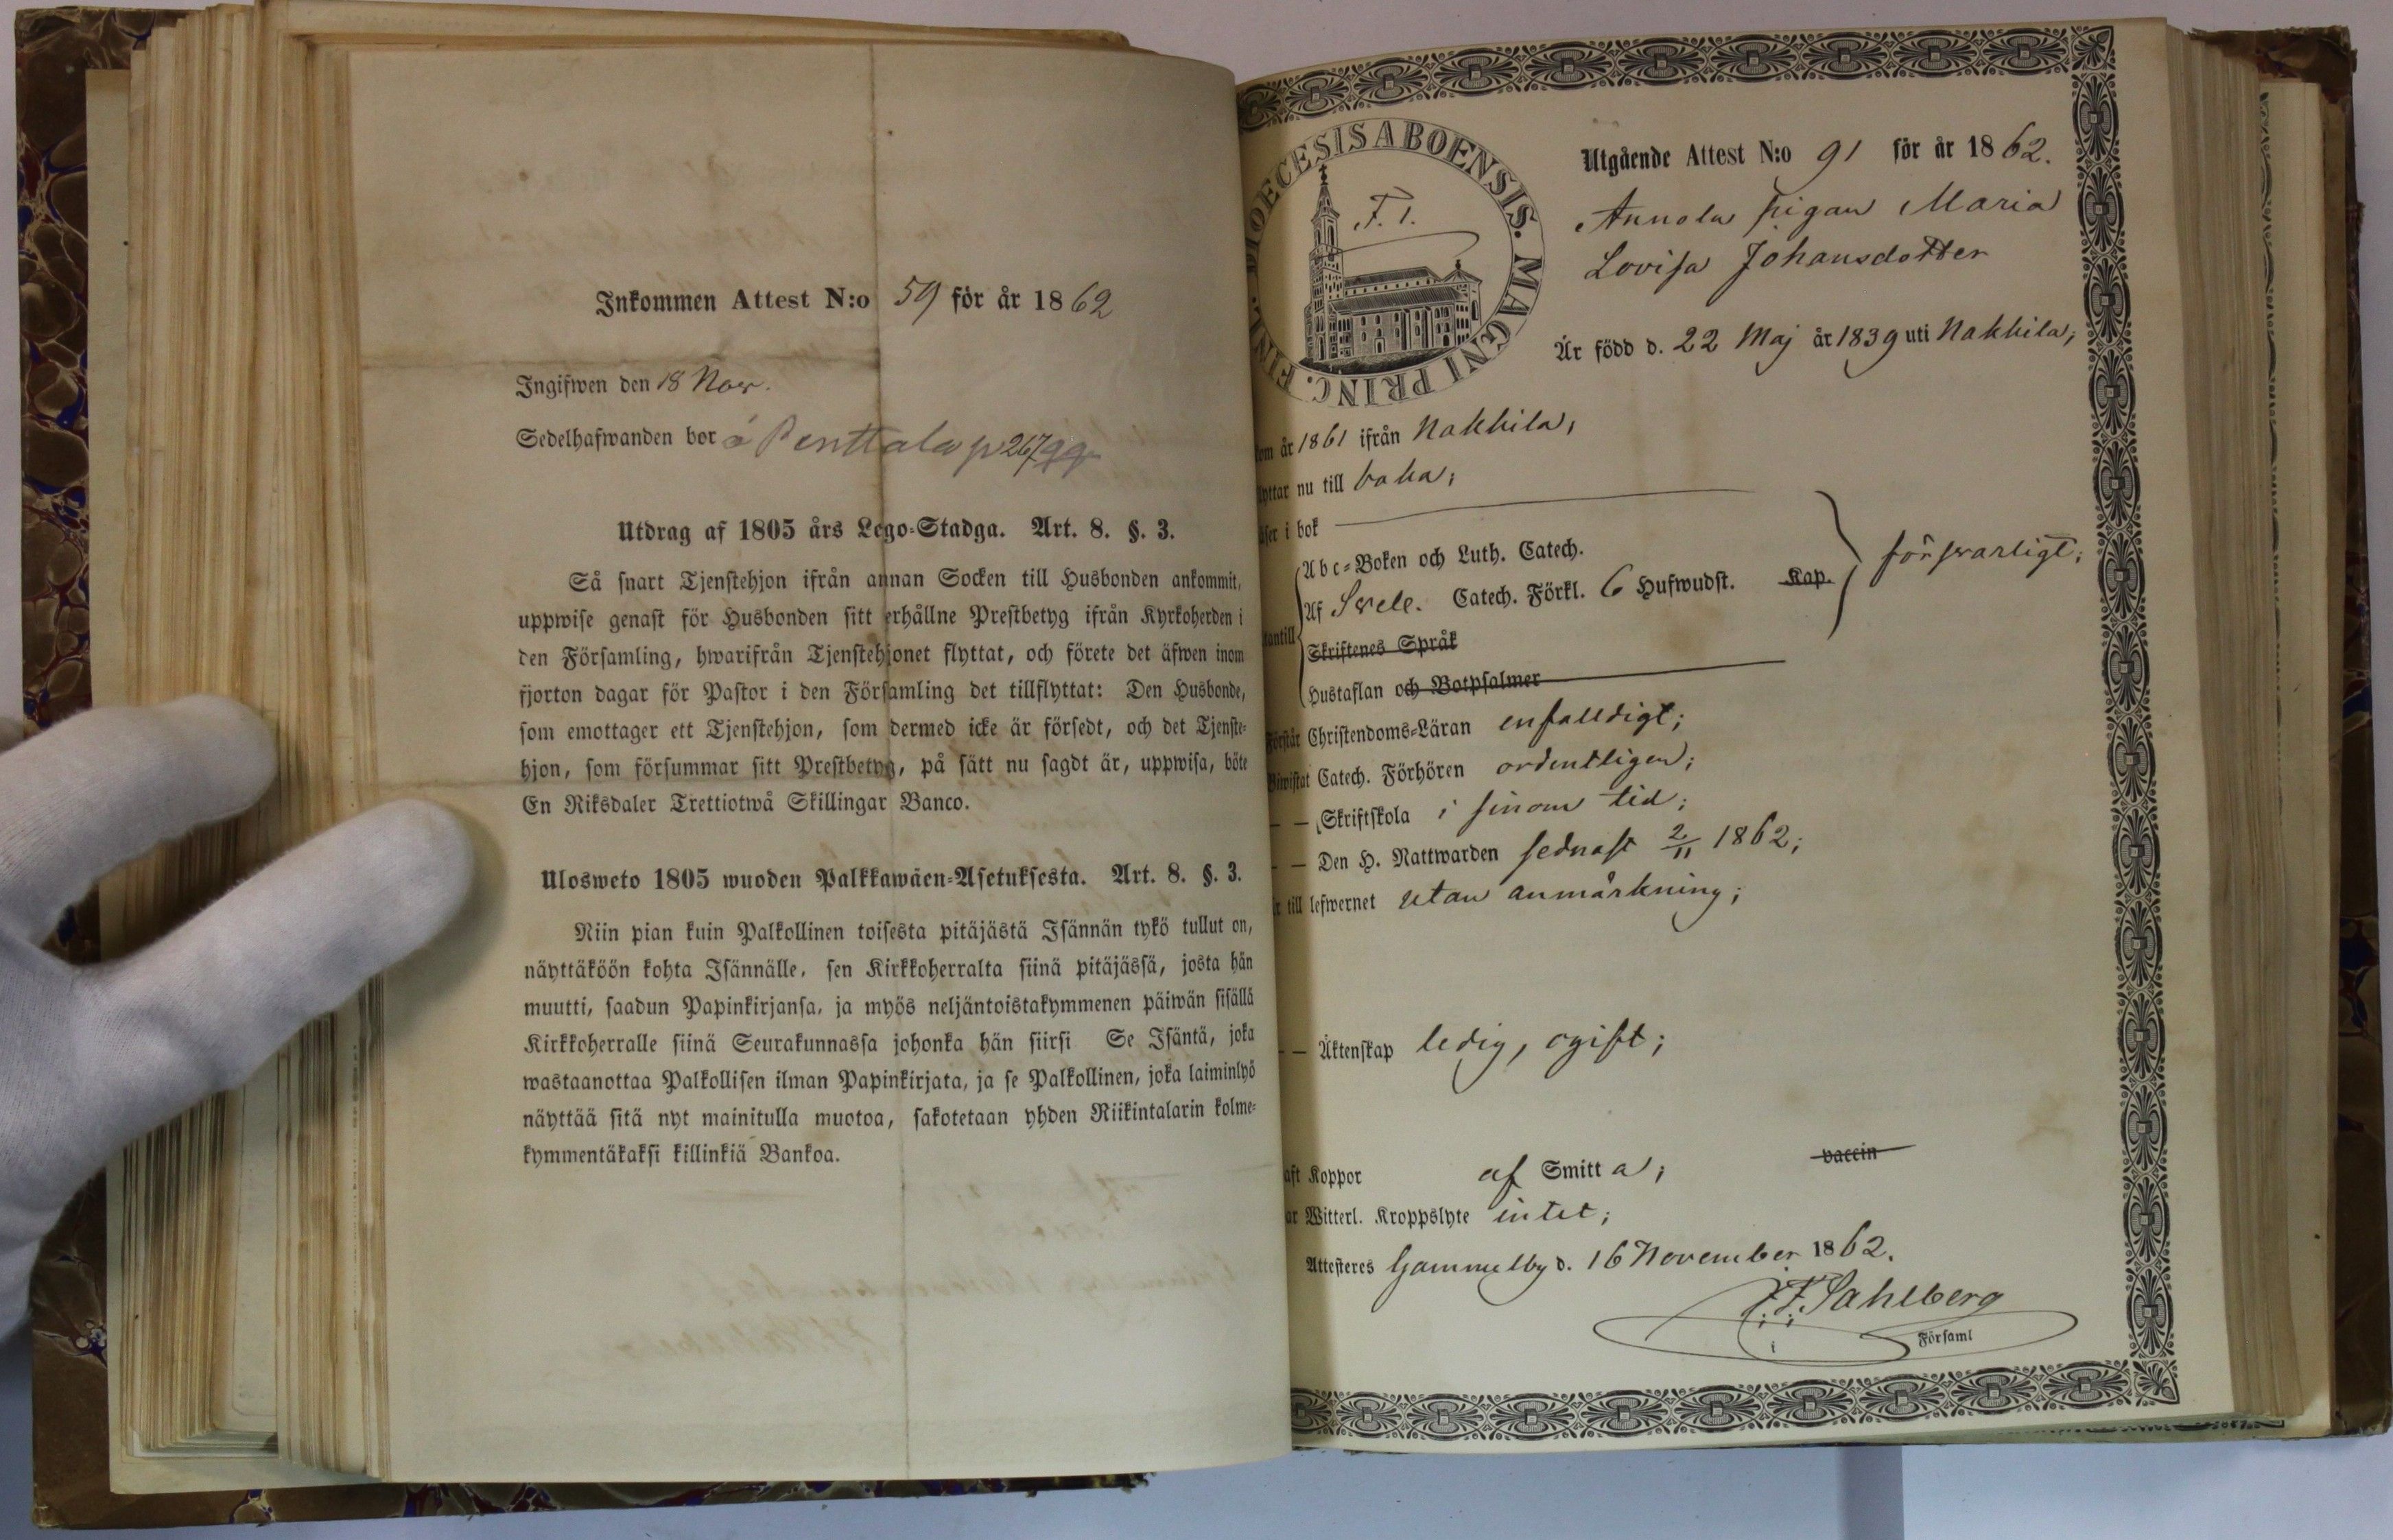 Inkommen Attest N:o 59 för år 1862
Ingifwen den 18 Nov.
Sedelhafwanden bor å Penttala p 267
Utdrag af 1805 års Lego-Stadga. Art. 8. §. 3.
Så snart Tjenstehjon ifrån annan Socken till Husbonden ankommit,
uppwise genast för Husbonden sitt erhållne Prestbetyg ifrån Kyrkoherden i
den Församling, hwarifrån Tjenstehjonet flyttat, och förete det äfwen inom
fjorton dagar för Pastor i den Församling det tillflyttat: Den Husbonde,
som emottager ett Tjenstehjon, som dermed icke är försedt, och det Tjenste-
hjon, som försummar sitt Prestbetyg, på sätt nu sagdt är, uppwisa, böte
En Riksdaler Trettiotwå Skillingar Banco.
Ulosweto 1805 wuoden Palkkawäen-Asetuksesta. Art. 8. §. 3.
Niin pian kuin Palkollinen toisesta pitäjästä Isännän tykö tullut on,
näyttäköön kohta Isännälle, sen Kirkkoherralta siinä pitäjässä, josta hän
muutti, saadun Papinkirjansa, ja myös neljäntoistakymmenen päiwän sisällä
Kirkkoherralle siinä Seurakunnassa johonka hän siirsi Se Isäntä, joka
wastaanottaa Palkollisen ilman Papinkirjata, ja se Palkollinen, joka laiminlyö
näyttää sitä nyt mainitulla muotoa, sakotetaan yhden Riikintalarin kolme-
kymmentäkaksi killinkiä Bankoa.
DIOECESIS ABOENSIS. MAGNI PRINC. FINL.
F. 1.
Utgående Attest N:o 91 för år 1862.
Annola pigan Maria
Lovisa Johansdotter
Är född d. 22 Maj år 1839 uti Nakkila;
kom år 1861 ifrån Nakkila,
flyttar nu till
läser i bok
Abc-Boken och Luth. Catech.
Af Svel. Catech. Förkl. 6 Hufwudst. Kap. försvarligt;
utantill
Skriftenes Språk
Hustaflan och Botpsalmer
Förstår Christendoms-Läran enfalldigt;
Biwistat Catech. Förhören ordentligen;
— — Skriftskola i sinom tid;
— — Den H. Nattwarden sednast 2/11 1862;
är till lefwernet utan anmärkning;
— — Äktenskap ledig, ogift;
haft Koppor af Smitta; vaccin
har Witterl. Kroppslyte intet;
Attesteres Gammelby d. 16 November 1862.
F. Sahlberg
i Församl